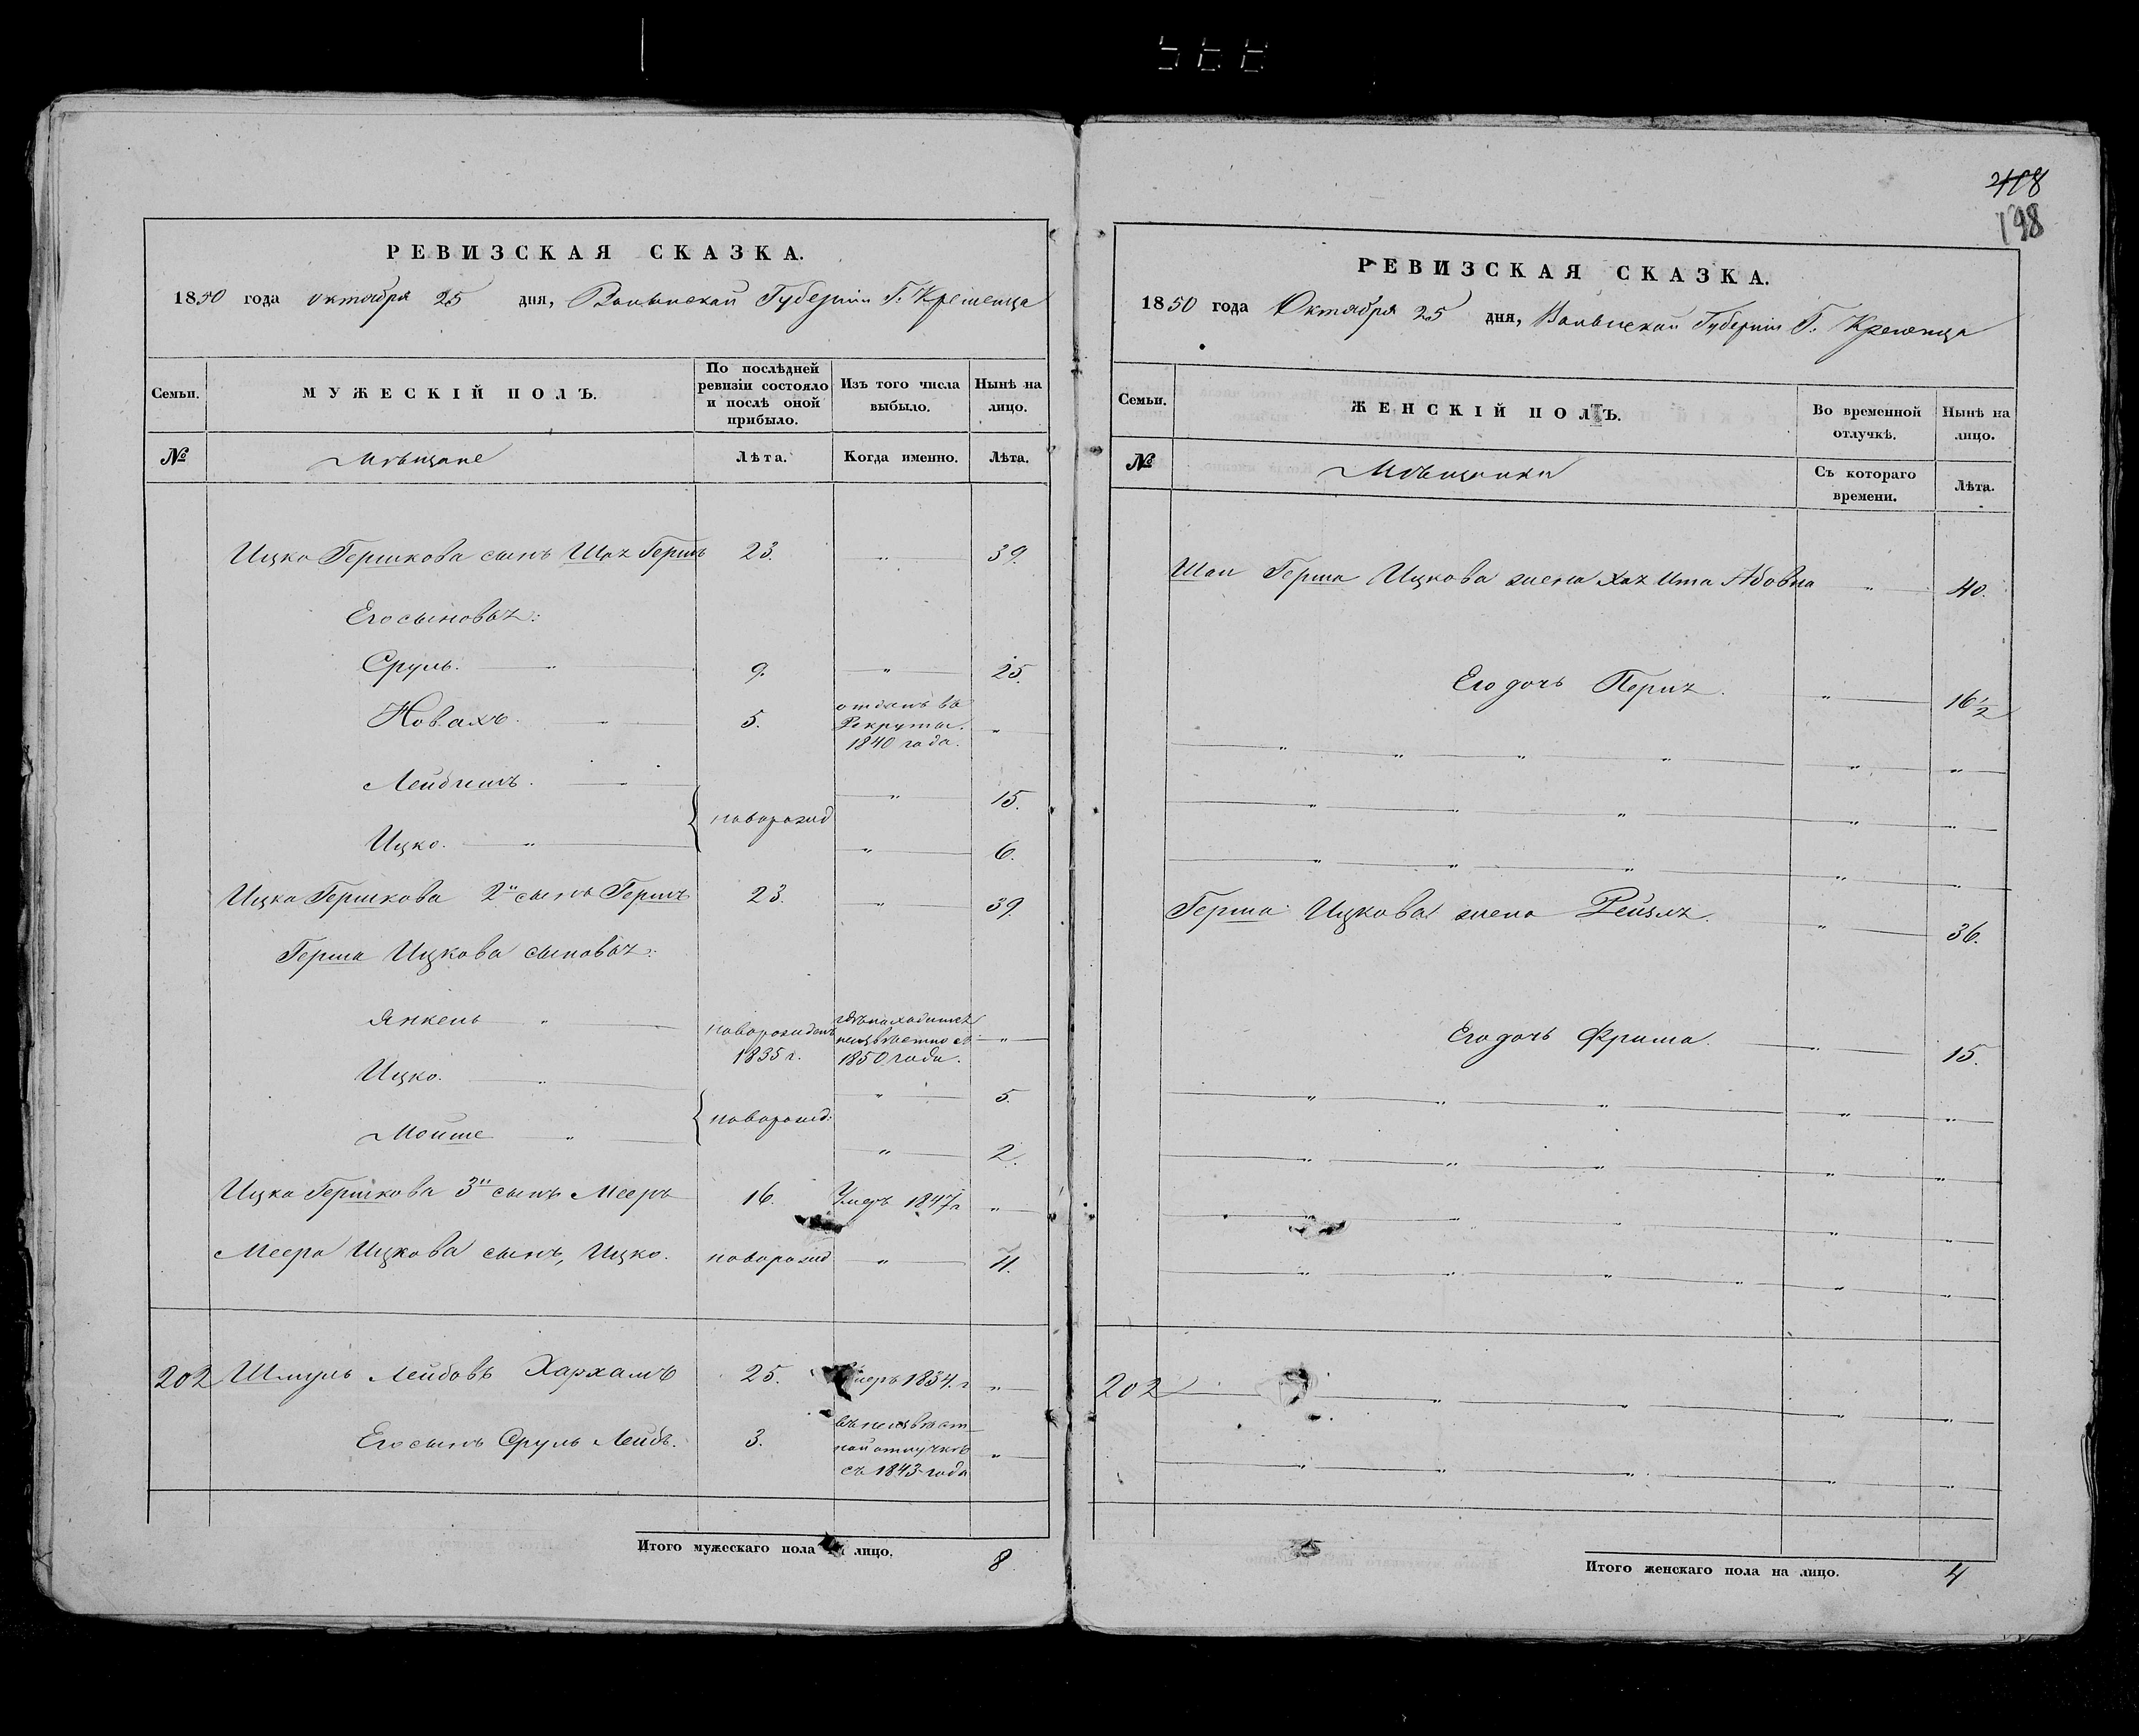 418
198
РЕВИЗСКАЯ СКАЗКА.
1850 года октября 25 дня, Волынской Губернiи Г. Кременца
Семьи. МУЖЕСКIЙ ПОЛЪ. По послѣдней ревизiи состояло и послѣ оной прибыло. Изъ того числа выбыло. Нынѣ на лицо.
№ Мѣщане Лѣта. Когда именно. Лѣта.
Ицка Гершкова сынъ Шая Гершъ 23. " 39.
Его сыновья:
Сруль. " 9. " 25.
Новахъ. " 5. отданъ въ Рекруты. 1840 года. "
Лейбишъ. " новорожд " 15.
Ицко. " " 6.
Ицка Гершкова 2й сынъ Гершъ 23. " 39.
Герша Ицкова сыновья:
Янкель " новорожденъ 1835 г. гдѣ находится неизвѣстно съ 1850 года. "
Ицко. " новорожд: " 5.
Мойше " " 2.
Ицка Гершкова 3й сынъ Мееръ 16. Умеръ 1847 г "
Меера Ицкова сынъ, Ицко. новорожд " 4.
202 Шмуль Лейбовъ Хархамъ 25. Умеръ 1834. г "
Его сынъ Сруль Лейб. 3. въ неизвѣстной отлучкѣ съ 1843 года "
Итого мужескаго пола на лицо. 8
РЕВИЗСКАЯ СКАЗКА.
1850 года Октября 25 дня, Волынской Губернiи Г. Кременца
Семьи. ЖЕНСКIЙ ПОЛЪ. Во временной отлучкѣ. Нынѣ на лицо.
№ Мѣщанки Съ котораго времени. Лѣта.
Шаи Герша Ицкова жена Хая Ита Абовна " 40.
Его дочь Перля. " 16 1/2
" " " " " "
" " " " "
" " " " "
Герша Ицкова жена Рейзля. " 36.
Его дочь Фрима. " 15.
" " " "
" " " " "
" " "
" " " " " "
202 " " " "
" " " " "
Итого женскаго пола на лицо. 4